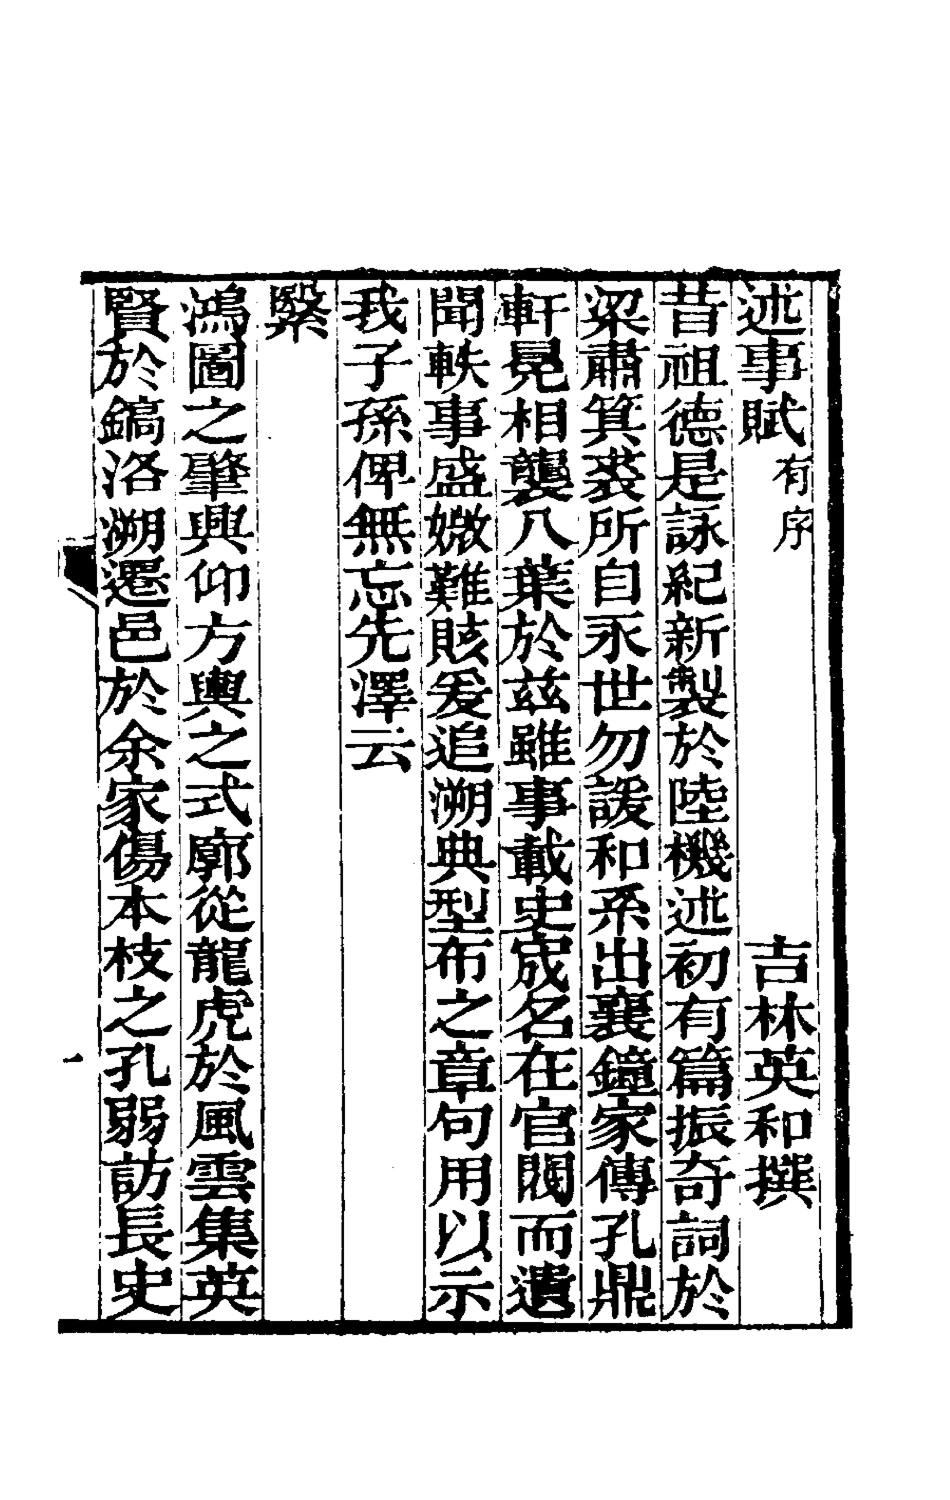 述事賦有序
吉林英和撰
昔祖德是詠紀新製於陸機述初有篇振奇詞於
梁肅箕裘所自永世勿諼和系出襄鐘家傳孔鼎
軒冕相襲八葉於兹雖事載史宬名在官閥而遺
聞軼事盛媺難賅爰追溯典型布之章句用以示
我子孫俾無忘先澤云
繄
鴻圖之肇興仰方輿之式廓從龍虎於風雲集英
賢於鎬洛溯遷邑於余家傷本枝之孔弱訪長史
一